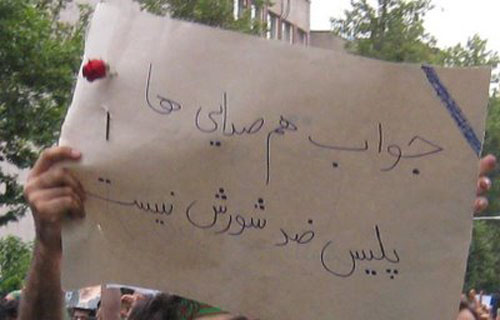 جواب هم صدایی ها
پلیس ضد شورش نیست